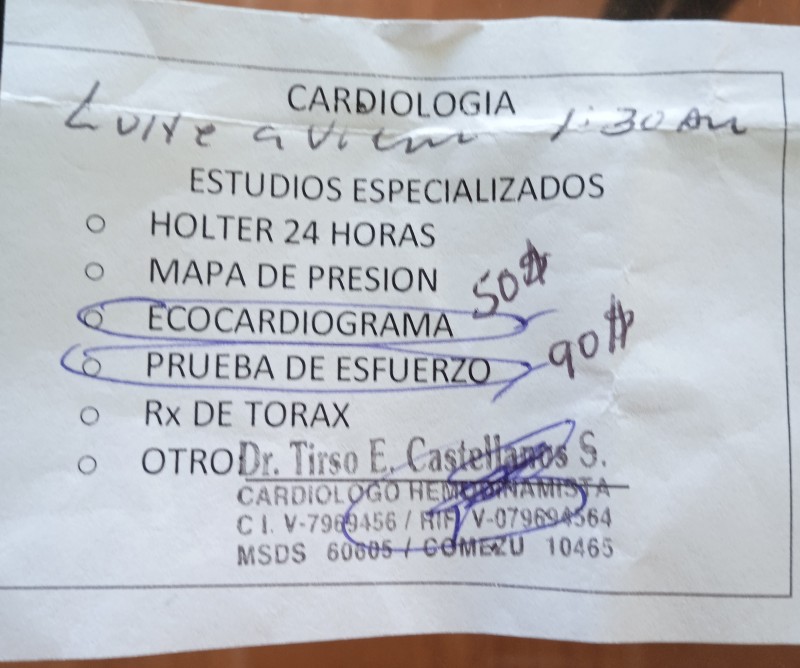 CARDIOLOGIA
Lune a Viern 1:30 am
ESTUDIOS ESPECIALIZADOS
○ HOLTER 24 HORAS
○ MAPA DE PRESION
○ ECOCARDIOGRAMA 50$
○ PRUEBA DE ESFUERZO 90$
○ Rx DE TORAX
○ OTRO
Dr. Tirso E. Castellanos S.
CARDIOLOGO HEMODINAMISTA
C I. V-7969456 / RIF V-079694564
MSDS 60605 / COMEZU 10465